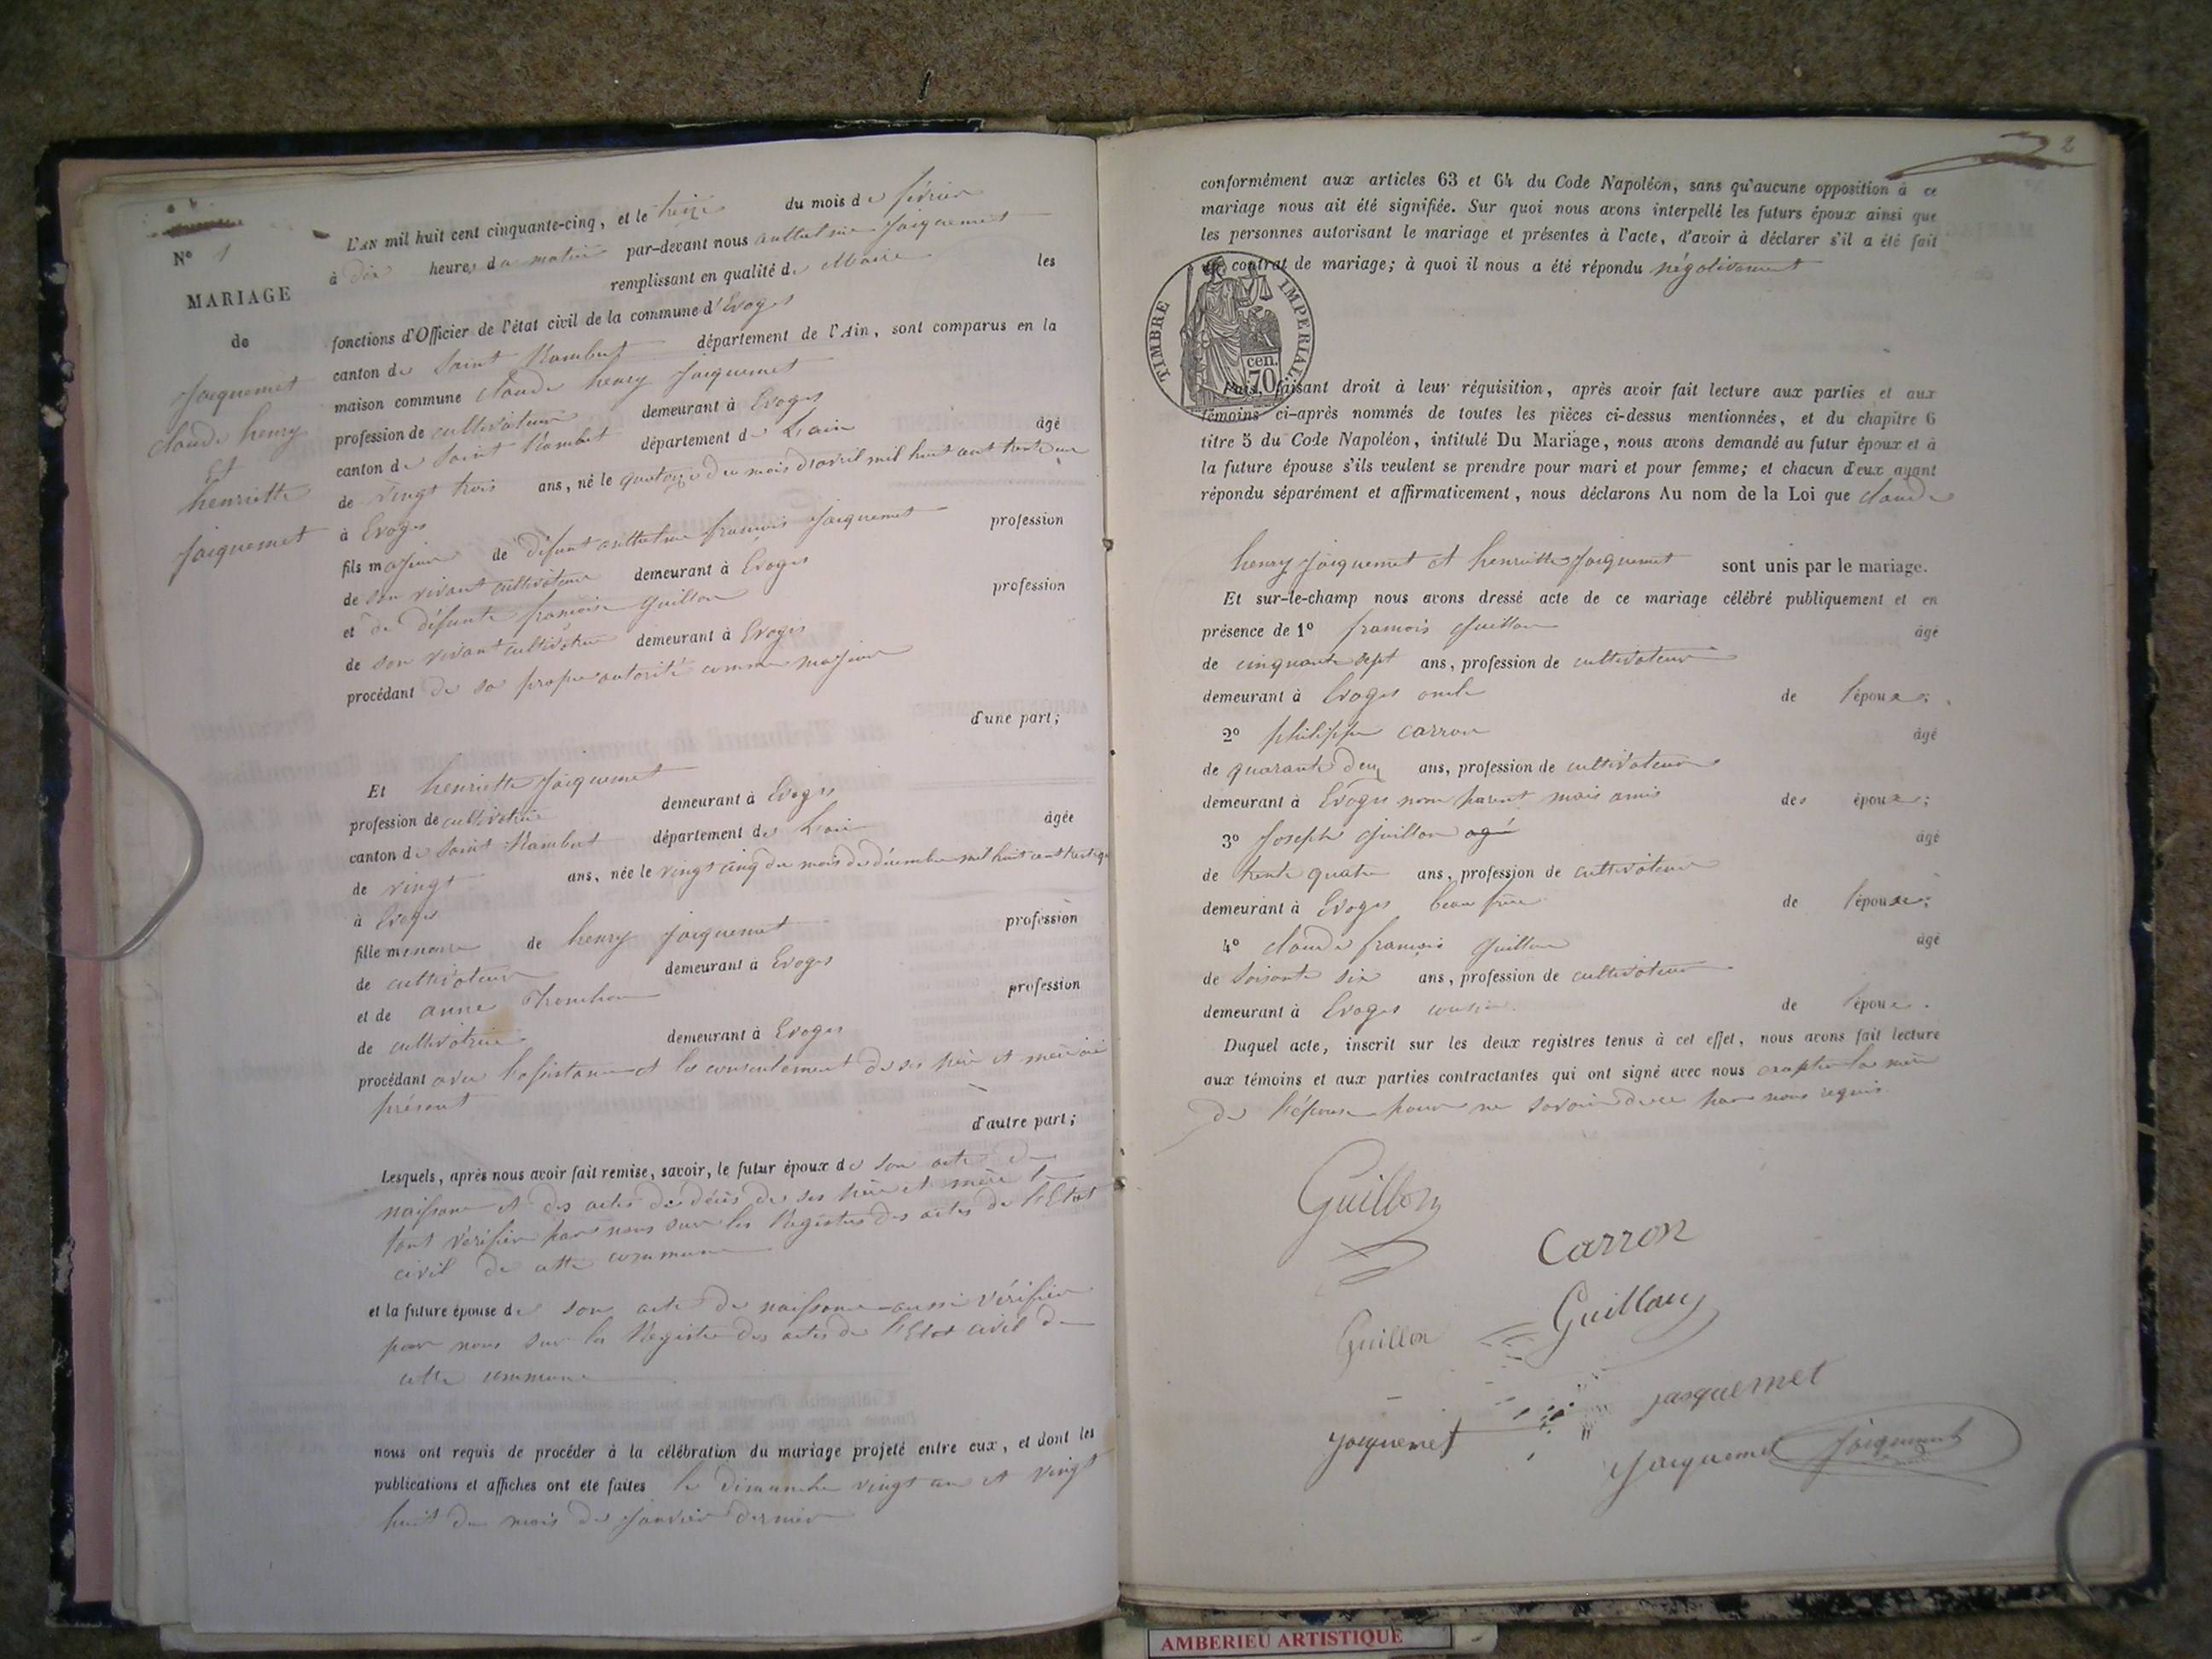 N° 1
MARIAGE
de
Jacquemet
claude henry
Et
henriette
Jacquemet
L'AN mil huit cent cinquante-cinq, et le treize du mois de février
à dix heures du matin par-devant nous anthelme Jacquemet
remplissant en qualité de Maire les
fonctions d'Officier de l'état civil de la commune d'Evoges
canton de Saint Rambert département de l'Ain, sont comparus en la
maison commune claude henry Jacquemet
profession de cultivateur demeurant à Evoges
canton de Saint Rambert département de L'ain âgé
de vingt trois ans, né le quatorze du mois d'avril mil huit cent trente un
à Evoges
fils majeur de défunt anthelme françois Jacquemet profession
de son vivant cultivateur demeurant à Evoges
et de défunte françoise Guillon profession
de son vivant cultivatrice demeurant à Evoges
procédant de sa propre autorité comme majeur
d'une part;
Et henriette Jacquemet
profession de cultivatrice demeurant à Evoges
canton de Saint Rambert département de L'ain âgée
de vingt ans, née le vingt cinq du mois de décembre mil huit cent trente
à Evoges
fille mineure de henry Jacquemet profession
de cultivateur demeurant à Evoges
et de anne profession
de cultivatrice demeurant à Evoges
procédant avec l'assistance et le consentement de ses père et mère ici
présent
d'autre part;
Lesquels, après nous avoir fait remise, savoir, le futur époux de son acte de
naissance et des actes de décès de ses père et mère le
tout vérifier par nous sur les Registres des actes de l'Etat
civil de cette commune
et la future épouse de son acte de naissance aussi vérifier
par nous sur les Registre des actes de l'Etat civil de
cette commune
nous ont requis de procéder à la célébration du mariage projeté entre eux, et dont les
publications et affiches ont été faites le dimanche vingt un et vingt
huit du mois de Janvier dernier
2
conformément aux articles 63 et 64 du Code Napoléon, sans qu'aucune opposition à ce
mariage nous ait été signifiée. Sur quoi nous avons interpellé les futurs époux ainsi que
les personnes autorisant le mariage et présentes à l'acte, d'avoir à déclarer s'il a été fait
un contrat de mariage; à quoi il nous a été répondu négativement
TIMBRE IMPERIAL
70 cen.
Puis, faisant droit à leur réquisition, après avoir fait lecture aux parties et aux
témoins ci-après nommés de toutes les pièces ci-dessus mentionnées, et du chapitre 6
titre 5 du Code Napoléon, intitulé Du Mariage, nous avons demandé au futur époux et à
la future épouse s'ils veulent se prendre pour mari et pour femme; et chacun d'eux ayant
répondu séparément et affirmativement, nous déclarons Au nom de la Loi que claude
henry Jacquemet et henriette Jacquemet sont unis par le mariage.
Et sur-le-champ nous avons dressé acte de ce mariage célébré publiquement et en
présence de 1° françois Guillon âgé
de cinquante sept ans, profession de cultivateur
demeurant à Evoges oncle de l'époux;
2° philippe carron âgé
de quarante deux ans, profession de cultivateur
demeurant à Evoges non parent mais amis des époux;
3° Joseph Guillon agé âgé
de trente quatre ans, profession de cultivateur
demeurant à Evoges beau frère de l'épouse;
4° claude françois Guillon âgé
de soixante six ans, profession de cultivateur
demeurant à Evoges cousin de l'époux.
Duquel acte, inscrit sur les deux registres tenus à cet effet, nous avons fait lecture
aux témoins et aux parties contractantes qui ont signé avec nous excepter la mère
de l'épouse pour ne savoir de ce par nous requis
Guillon
Carron
Guillon
Guillon
Jacquemet
Jacquemet
Jacquemet
Jacquemet
AMBERIEU ARTISTIQUE